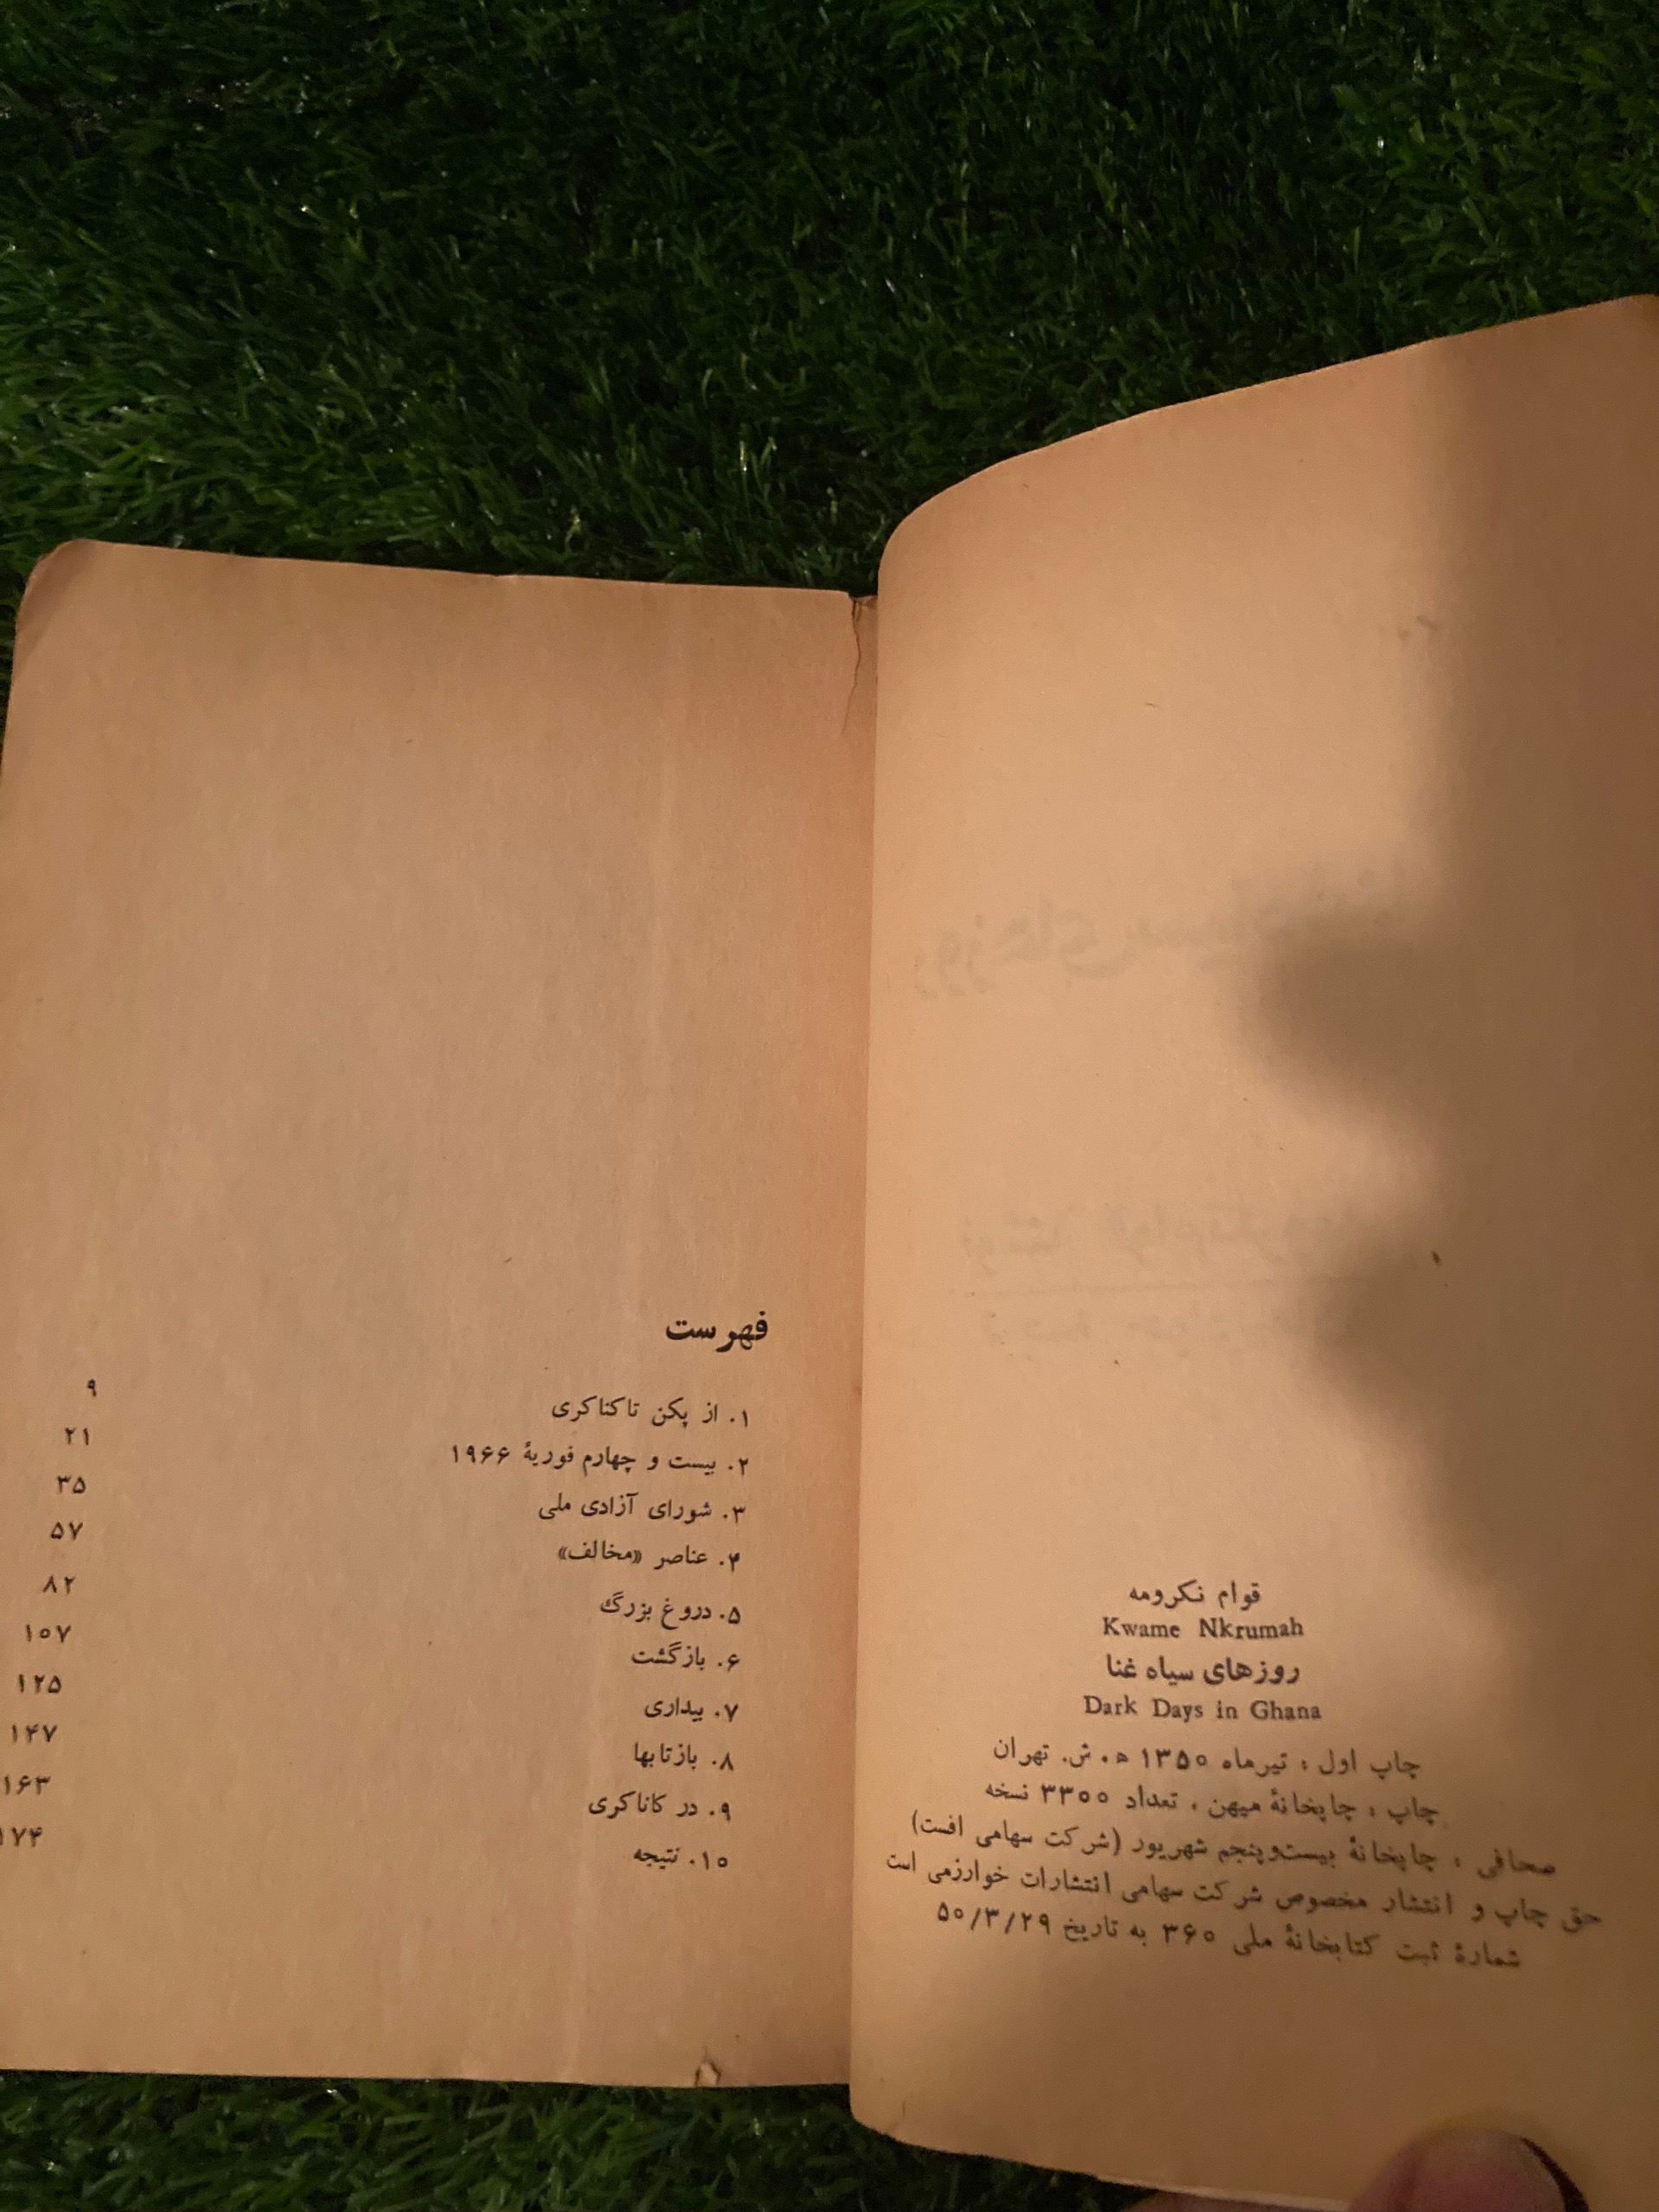 قوام نکرومه
Kwame Nkrumah
روزهای سیاه غنا
Dark Days in Ghana
چاپ اول : تیرماه ۱۳۵۰ ه. ش. تهران
چاپ : چاپخانهٔ میهن ، تعداد ۳۳۰۰ نسخه
صحافی : چاپخانهٔ بیست‌وپنجم شهریور (شرکت سهامی افست)
حق چاپ و انتشار مخصوص شرکت سهامی انتشارات خوارزمی است
شمارهٔ ثبت کتابخانهٔ ملی ۳۶۰ به تاریخ ۵۰/۳/۲۹
فهرست
۱. از پکن تا کناکری ۹
۲. بیست و چهارم فوریهٔ ۱۹۶۶ ۲۱
۳. شورای آزادی ملی ۳۵
۴. عناصر «مخالف» ۵۷
۵. دروغ بزرگ ۸۲
۶. بازگشت ۱۰۷
۷. بیداری ۱۲۵
۸. بازتابها ۱۴۷
۹. در کاناکری ۱۶۳
۱۰. نتیجه ۱۷۴